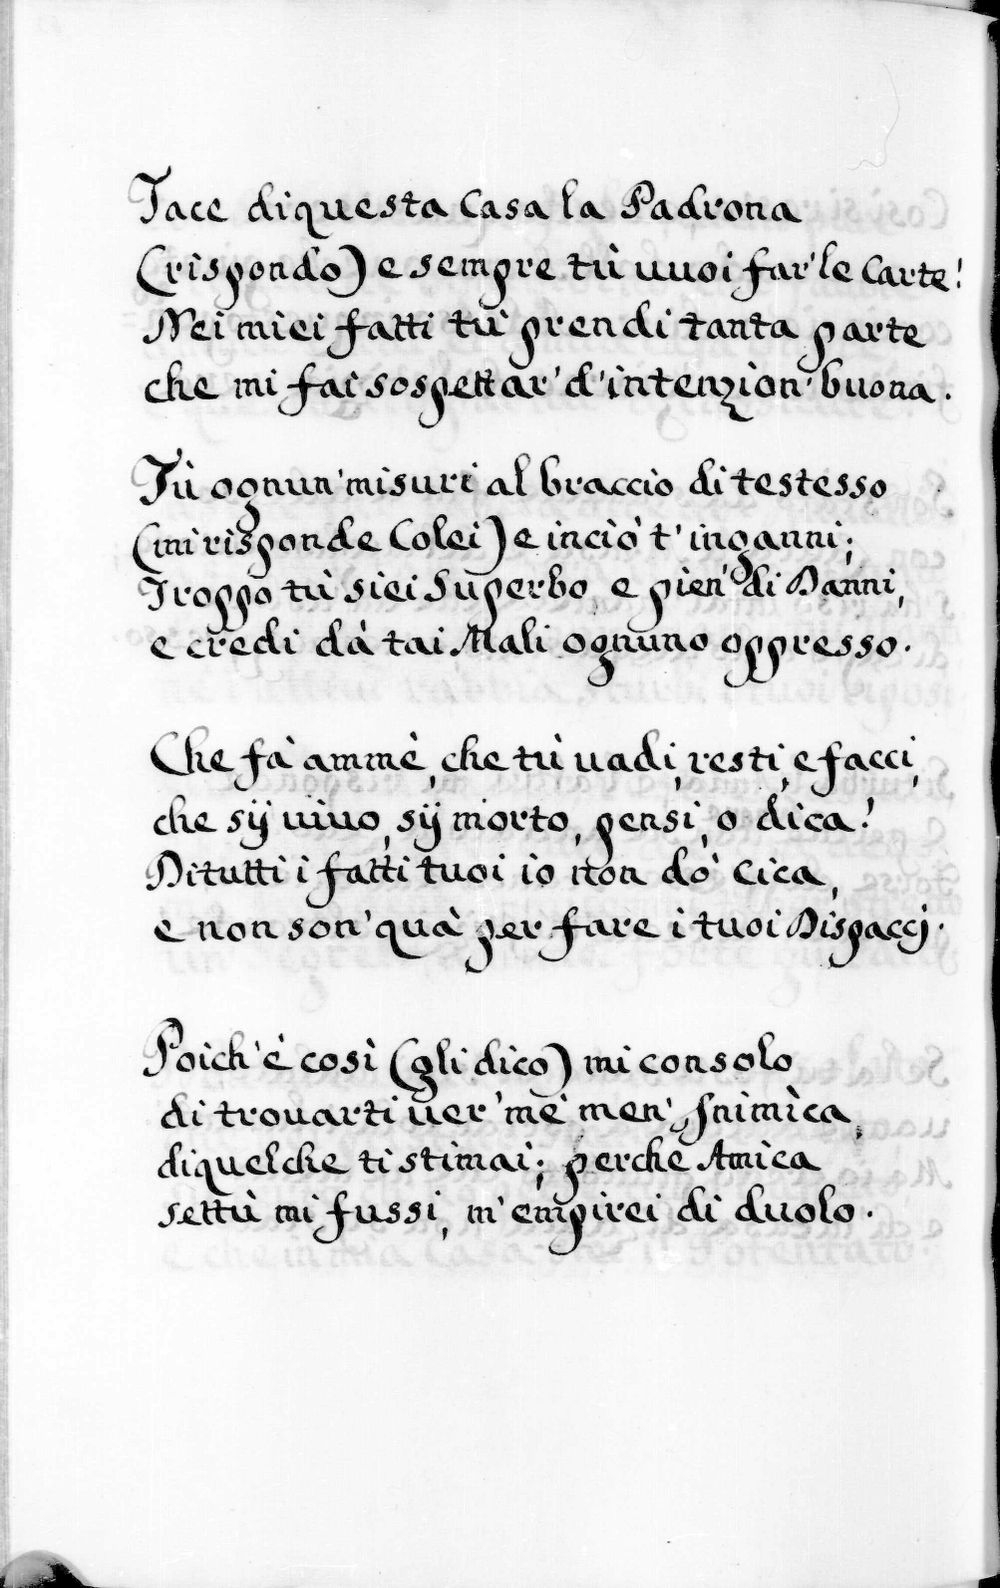 Tace di questa Casa la Padrona
(rispondo) e sempre tù vuoi far' le Carte!
Nei miei fatti tù prendi tanta parte
che mi fai sospettar' d'intenzion' buona.
Tù ognun' misuri al braccio di testesso
(mi risponde Colei) e inciò t'inganni;
Troppo tù siei Superbo, e pien' di Danni,
e credi dà tai Mali ognuno oppresso.
Che fà ammè, che tù vadi, resti, e facci,
che sÿ vivo, sÿ morto, pensi, o dica!
Di tutti i fatti tuoi io non dò Cica,
e non son' quà per fare i tuoi Dispaccj.
Poich'è così (gli dico) mi consolo
di trovarti ver' mè men' Inimìca,
di quelche ti stimai; perche Amica
settù mi fussi, m'empirei di duolo.